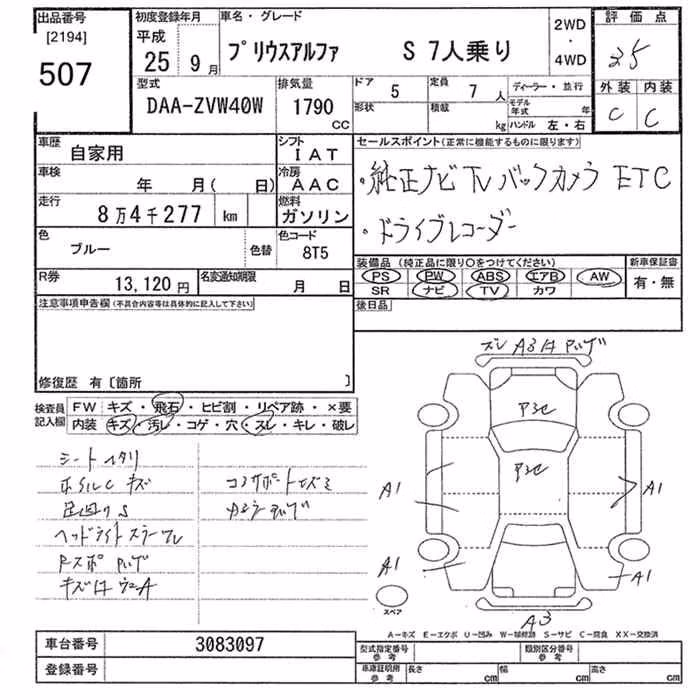 出品番号
[2194]
507
初度登録年月
平成
25 9 月
車名・グレード
プリウスアルファ S 7人乗り
2WD
・
4WD
評価点
35
型式
DAA-ZVW40W
排気量
1790
CC
ドア 5
定員 7 人
ディーラー・並行
形状
積載
kg
モデル年式 年
ハンドル 左・右
外装 内装
C C
車歴
自家用
シフト
I AT
車検
年 月( 日)
冷房
A AC
走行
8万4千277 km
燃料
ガソリン
色
ブルー
色替
色コード
8T5
R券
13,120 円
名変通知期限
月 日
セールスポイント(正常に機能するものに限ります)
・純正ナビ TV バックカメラ ETC
・ドライブレコーダー
装備品 (純正品に限り○をつけてください)
PS PW ABS エアB AW
SR ナビ TV カワ
新車保証書
有・無
後日品
注意事項申告欄(不具合内容等は具体的に記入して下さい)
修復歴 有〔箇所 〕
検査員
記入欄
FW キズ・飛石・ヒビ割・リペア跡・×要
内装 キズ・汚レ・コゲ・穴・スレ・キレ・破レ
シートヘタリ
ホイルC キズ
足回りS
ヘッドライト
Rスポ ハゲ
コアサポートエズミ
A3
A1
A1
A1
A1
A3
スペア
A-キズ E-エクボ U-凹み W-補修跡 S-サビ C-腐食 XX-交換済
車台番号 3083097
登録番号
型式指定番号
参考
類別区分番号
参考
車庫証明用
参考
長さ cm
幅 cm
高さ cm